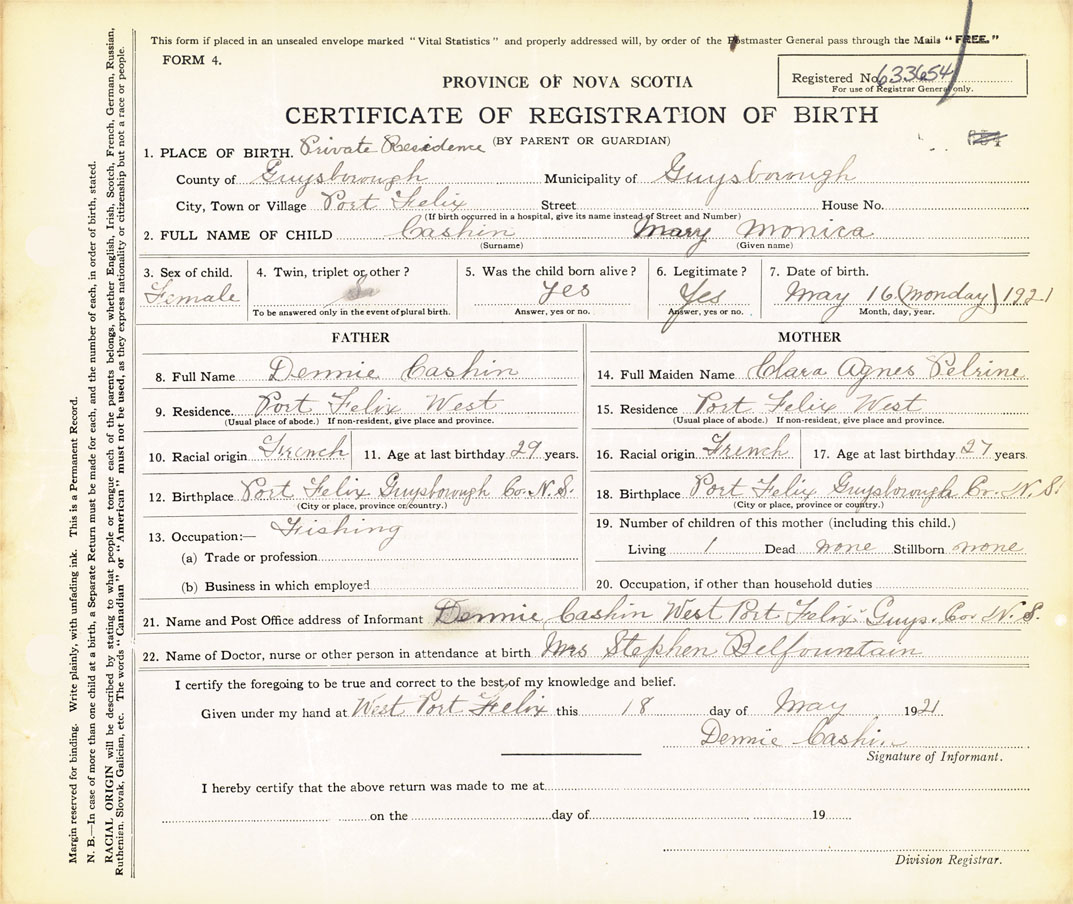 This form if placed in an unsealed envelope marked "Vital Statistics" and properly addressed will, by order of the Postmaster General pass through the Mails "FREE."
FORM 4.
PROVINCE OF NOVA SCOTIA
Registered No. 633654
For use of Registrar General only.
CERTIFICATE OF REGISTRATION OF BIRTH
(BY PARENT OR GUARDIAN)
1. PLACE OF BIRTH. Private Residence
County of Guysborough Municipality of Guysborough
City, Town or Village Port Felix Street House No.
(If birth occurred in a hospital, give its name instead of Street and Number)
2. FULL NAME OF CHILD Cashin Mary Monica
(Surname) (Given name)
3. Sex of child. 4. Twin, triplet or other? 5. Was the child born alive? 6. Legitimate? 7. Date of birth.
Female Yes Yes May 16 (Monday) 1921
To be answered only in the event of plural birth. Answer, yes or no. Answer, yes or no. Month, day, year.
FATHER MOTHER
8. Full Name Dennie Cashin 14. Full Maiden Name Clara Agnes Pelrine
9. Residence. Port Felix West 15. Residence Port Felix West
(Usual place of abode.) If non-resident, give place and province. (Usual place of abode.) If non-resident, give place and province.
10. Racial origin French 11. Age at last birthday 29 years. 16. Racial origin French 17. Age at last birthday 27 years.
12. Birthplace Port Felix Guysborough Co. N.S. 18. Birthplace Port Felix Guysborough Co. N.S.
(City or place, province or country.) (City or place, province or country.)
13. Occupation:— Fishing 19. Number of children of this mother (including this child.)
(a) Trade or profession Living 1 Dead none Stillborn none
(b) Business in which employed 20. Occupation, if other than household duties
21. Name and Post Office address of Informant Dennie Cashin West Port Felix Guys. Co. N.S.
22. Name of Doctor, nurse or other person in attendance at birth Mrs Stephen Belfountain
I certify the foregoing to be true and correct to the best of my knowledge and belief.
Given under my hand at West Port Felix this 18 day of May 1921.
Dennie Cashin
Signature of Informant.
I hereby certify that the above return was made to me at
on the day of 19
Division Registrar.
Margin reserved for binding. Write plainly, with unfading ink. This is a Permanent Record.
N. B.—In case of more than one child at a birth, a Separate Return must be made for each, and the number of each, in order of birth, stated.
RACIAL ORIGIN will be described by stating to what people or tongue each of the parents belongs, whether English, Irish, Scotch, French, German, Russian,
Ruthenian, Slovak, Galician, etc. The words "Canadian" or "American" must not be used, as they express nationality or citizenship but not a race or people.